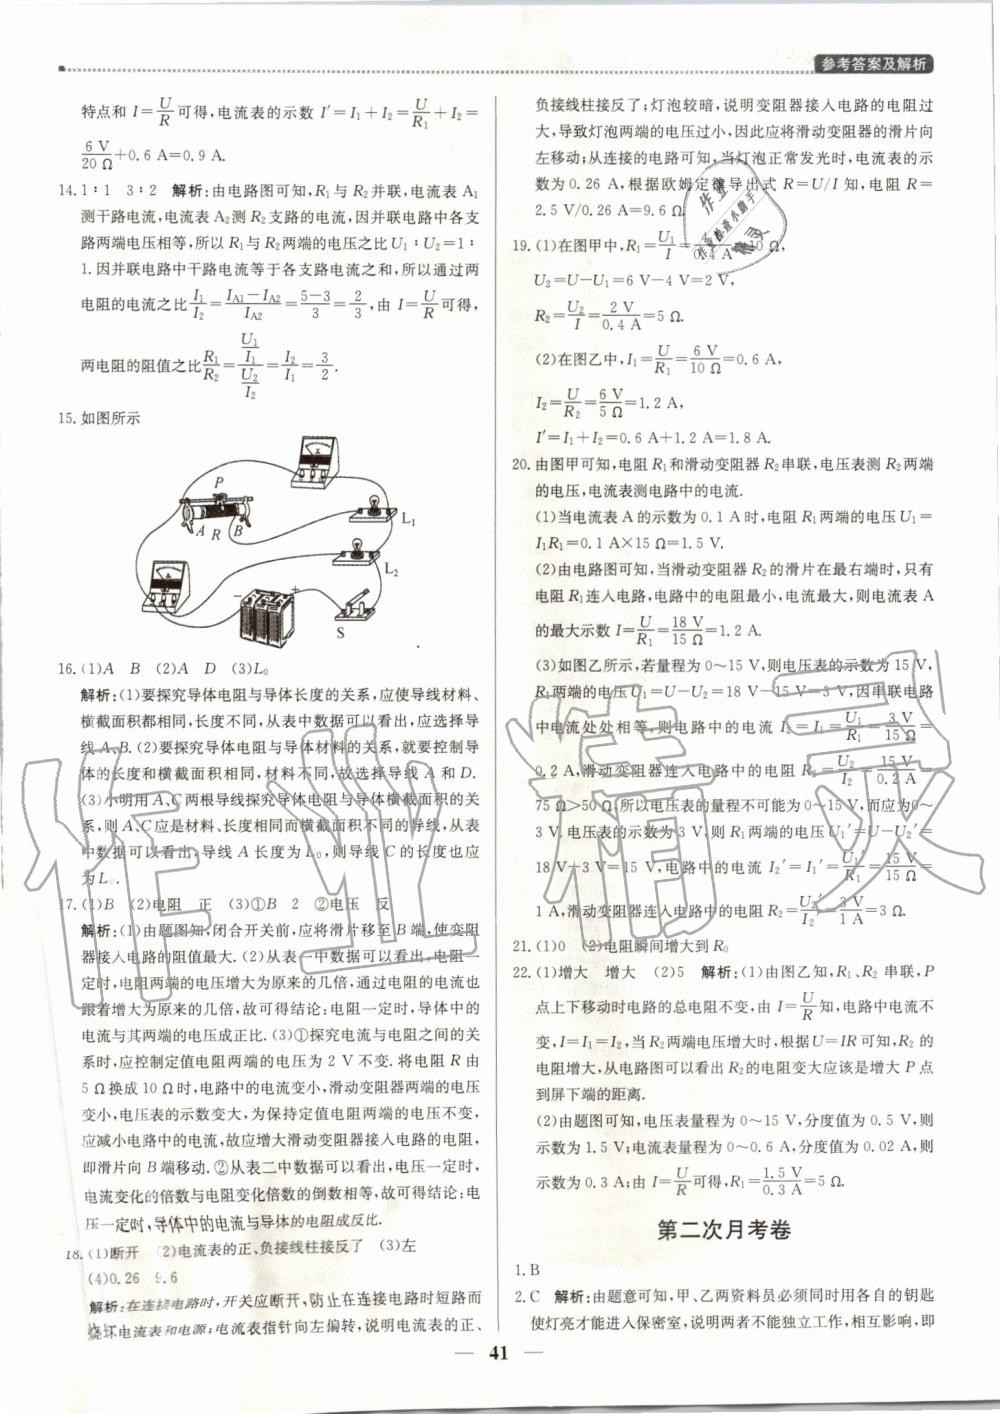 参考答案及解析
特点和 I=U/R 可得,电流表的示数 I′=I₁+I₂=U/R₁+I₂=
6 V/20 Ω+0.6 A=0.9 A.
14.1∶1　3∶2　解析:由电路图可知,R₁与 R₂并联,电流表 A₁
测干路电流,电流表 A₂测 R₂支路的电流,因并联电路中各支
路两端电压相等,所以 R₁与 R₂两端的电压之比 U₁∶U₂=1∶
1.因并联电路中干路电流等于各支路电流之和,所以通过两
电阻的电流之比 I₁/I₂=(I_A1−I_A2)/I_A2=(5−3)/3=2/3,由 I=U/R可得,
两电阻的阻值之比 R₁/R₂=(U₁/I₁)/(U₂/I₂)=I₂/I₁=3/2.
15.如图所示
P
A R B
L₁
L₂
− +
S
16.(1)A　B　(2)A　D　(3)L₀
解析:(1)要探究导体电阻与导体长度的关系,应使导线材料、
横截面积都相同,长度不同,从表中数据可以看出,应选择导
线 A、B.(2)要探究导体电阻与导体材料的关系,就要控制导
体的长度和横截面积相同,材料不同,故选择导线 A 和 D.
(3)小明用 A、C 两根导线探究导体电阻与导体横截面积的关
系,则 A、C 应是材料、长度相同而横截面积不同的导线,从表
中数据可以看出,导线 A 长度为 L₀,则导线 C 的长度也应
为 L₀.
17.(1)B　(2)电阻　正　(3)①B　2　②电压　反
解析:(1)由题图知,闭合开关前,应将滑片移至 B 端,使变阻
器接入电路的阻值最大.(2)从表一中数据可以看出,电阻一
定时,电阻两端的电压增大为原来的几倍,通过电阻的电流也
跟着增大为原来的几倍,故可得结论:电阻一定时,导体中的
电流与其两端的电压成正比.(3)①探究电流与电阻之间的关
系时,应控制定值电阻两端的电压为 2 V 不变.将电阻 R 由
5 Ω 换成 10 Ω 时,电路中的电流变小,滑动变阻器两端的电压
变小,电压表的示数变大,为保持定值电阻两端的电压不变,
应减小电路中的电流,故应增大滑动变阻器接入电路的电阻,
即滑片向 B 端移动.②从表二中数据可以看出,电压一定时,
电流变化的倍数与电阻变化倍数的倒数相等,故可得结论:电
压一定时,导体中的电流与导体的电阻成反比.
18.(1)断开　(2)电流表的正、负接线柱接反了　(3)左
(4)0.26　9.6
解析:在连接电路时,开关应断开,防止在连接电路时短路而
烧坏电流表和电源;电流表指针向左偏转,说明电流表的正、
负接线柱接反了;灯泡较暗,说明变阻器接入电路的电阻过
大,导致灯泡两端的电压过小,因此应将滑动变阻器的滑片向
左移动;从连接的电路可知,当灯泡正常发光时,电流表的示
数为 0.26 A,根据欧姆定律导出式 R=U/I 知,电阻 R=
2.5 V/0.26 A=9.6 Ω.
19.(1)在图甲中,R₁=U₁/I= /0.4 A=10 Ω,
U₂=U−U₁=6 V−4 V=2 V,
R₂=U₂/I=2 V/0.4 A=5 Ω.
(2)在图乙中,I₁=U/R₁=6 V/10 Ω=0.6 A,
I₂=U/R₂=6 V/5 Ω=1.2 A,
I′=I₁+I₂=0.6 A+1.2 A=1.8 A.
20.由图甲可知,电阻 R₁和滑动变阻器 R₂串联,电压表测 R₂两端
的电压,电流表测电路中的电流.
(1)当电流表 A 的示数为 0.1 A 时,电阻 R₁两端的电压 U₁=
I₁R₁=0.1 A×15 Ω=1.5 V.
(2)由电路图可知,当滑动变阻器 R₂的滑片在最右端时,只有
电阻 R₁连入电路,电路中的电阻最小,电流最大,则电流表 A
的最大示数 I=U/R₁=18 V/15 Ω=1.2 A.
(3)如图乙所示,若量程为 0～15 V,则电压表的示数为 15 V,
R₁两端的电压 U₁=U−U₂=18 V−15 V=3 V,因串联电路
中电流处处相等,则电路中的电流 I₂=I₁=U₁/R₁=3 V/15 Ω=
0.2 A,滑动变阻器连入电路中的电阻 R₂=U₂/I₂=15 V/0.2 A=
75 Ω>50 Ω,所以电压表的量程不可能为 0～15 V,而应为0～
3 V.电压表的示数为 3 V,则 R₁两端的电压 U₁′=U−U₂′=
18 V−3 V=15 V,电路中的电流 I₂′=I₁′=U₁′/R₁=15 V/15 Ω=
1 A,滑动变阻器连入电路中的电阻 R₂=U₂′/I₂′=3 V/1 A=3 Ω.
21.(1)0　(2)电阻瞬间增大到 R₀
22.(1)增大　增大　(2)5　解析:(1)由图乙知,R₁、R₂ 串联,P
点上下移动时电路的总电阻不变,由 I=U/R知,电路中电流不
变,I=I₁=I₂,当 R₂两端电压增大时,根据 U=IR 可知,R₂ 的
电阻增大,从电路图可以看出 R₂的电阻变大应该是增大 P 点
到屏下端的距离.
(2)由题图可知,电压表量程为 0～15 V,分度值为 0.5 V,则
示数为 1.5 V;电流表量程为 0～0.6 A,分度值为 0.02 A,则
示数为 0.3 A;由 I=U/R可得,R₁=1.5 V/0.3 A=5 Ω.
第二次月考卷
1.B
2.C　解析:由题意可知,甲、乙两资料员必须同时用各自的钥匙
使灯亮才能进入保密室,说明两者不能独立工作,相互影响,即
41
作业精灵